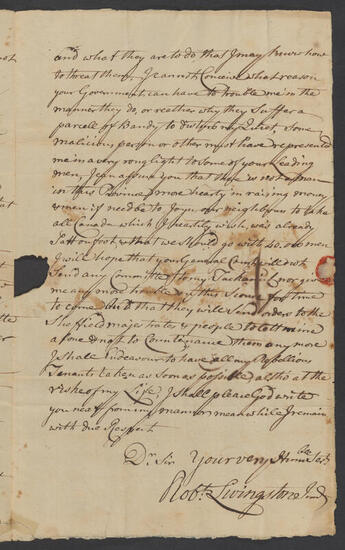 and what they are to do that I may know how
to threat them, I cannot Conceive what reason
your Government can have to treate me in the
manner they do, or reether why they Suffer a
parcell of Bandy to disturb my Quiet, Some
malicious person or other must have represented
me in a very rong light to Some of your leading
men, I can assure you that there is not a man
in this Province more hearty in raising money
& men if need be to Joyn our neighbours to take
all Canada which I heartily wish, was already
Satt on foot & that we Should go with 20,000 men
I will hope that your General Court will not
Send any Committe to my Tachanick nor give
me any more trouble in this Scene for time
to come And that they will Send orders to the
Sheffield majestrates & people to lett mine
alone & not to Countenance them any more
I Shall Endeavour to have all my Rebellious
Tenants taken as soon as possible altho at the
riske of my Life, I Shall please God write
you next from my mannor mean while I remain
with due Respect
Dr. Sir Your very Humble Sert
Robt Livingston Junr